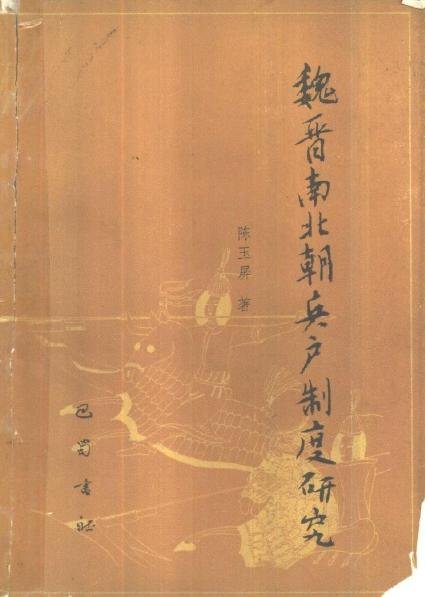 魏晋南北朝兵户制度研究
陈玉屏 著
巴蜀书社